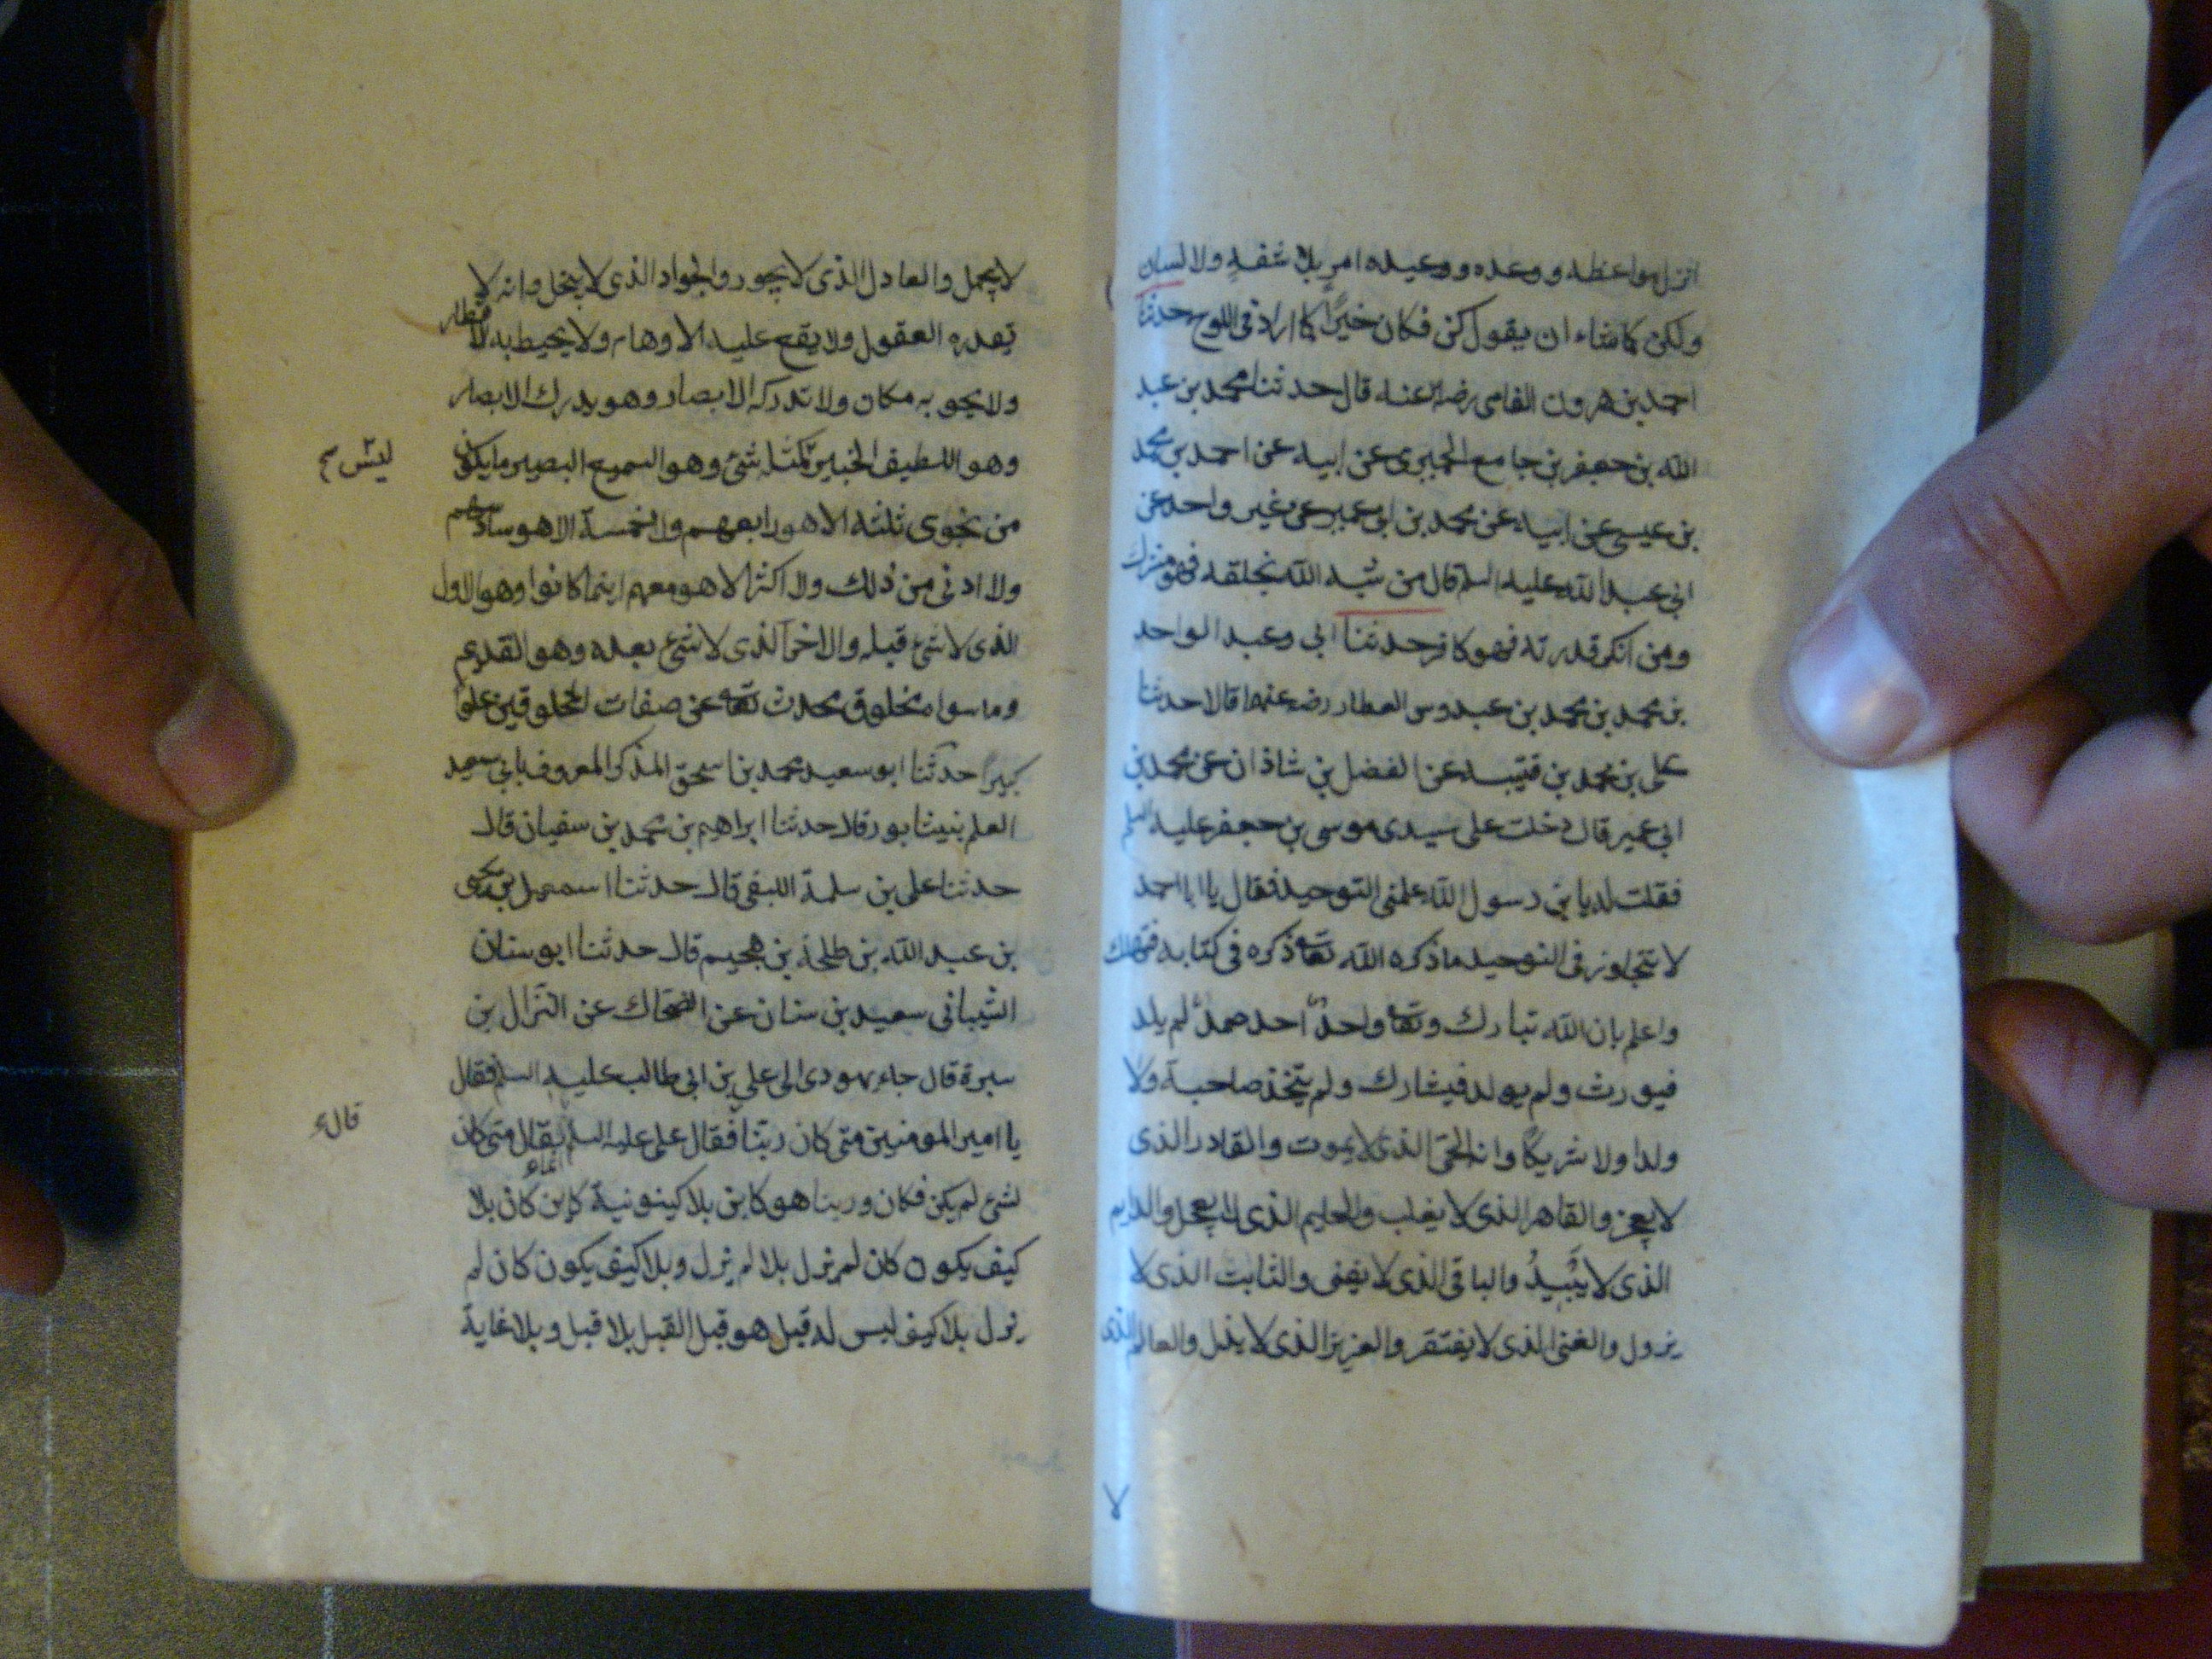 انزل مواعظه ووعده ووعيده امر بلا شفه ولا لسان
ولكن كما شاء ان يقول كن فكان خيرًا كما اراد في اللوح حدثنا
احمد بن هرون الفامي رضي الله عنه قال حدثنا محمد بن عبد
الله بن جعفر بن جامع الحميري عن ابيه عن احمد بن محمد
بن عيسى عن ابيه عن محمد بن ابي عمير عن غير واحد عن
ابي عبد الله عليه السلم قال من شبه الله بخلقه فهو مشرك
ومن انكر قدرته فهو كافر حدثنا ابي وعبد الواحد
بن محمد بن محمد بن عبدوس العطار رضي عنهما قالا حدثنا
على بن محمد بن قتيبه عن الفضل بن شاذان عن محمد بن
ابي عمير قال دخلت على سيدى موسى بن جعفر عليه السلم
فقلت له يا بن رسول الله علمني التوحيد فقال يا ابا احمد
لا تتجاوز في التوحيد ما ذكره الله تعه ذكره في كتابه فتهلك
واعلم بان الله تبارك وتعه واحدٌ احد صمدٌ لم يلد
فيورث ولم يولد فيشارك ولم يتخذ صاحبة ولا
ولدا ولا شريكًا وانه الحيّ الذى لا يموت والقادر الذى
لا يعجز والقاهر الذى لا يغلب والحليم الذى لا يعجل والدايم
الذى لا يَبِيدُ والباقى الذى لا يفنى والثابت الذى لا
يزول والغنى الذى لا يفتقر والعزيز الذى لا يذل والعالم الذى
لا
لا يجهل والعادل الذى لا يجور والجواد الذى لا يبخل وانه لا
تقدره العقول ولا يقع عليه الاوهام ولا يحيط به الاقطار
ولا يحويه مكان ولا تدركه الابصار وهو يدرك الابصار
وهو اللطيف الخبير كمثله شئ وهو السميع البصير ما يكون
ليس
من نجوى ثلثه الا هو رابعهم ولا خمسة الا هو سادسهم
ولا ادنى من ذلك ولا اكثر الا هو معهم اينما كانوا وهو الاول
الذى لا شئ قبله والاخر الذى لا شئ بعده وهو القديم
وما سواه مخلوق محدث تعه عن صفات المخلوقين علوًا
كبيرًا حدثنا ابو سعيد محمد بن اسحق المذكر المعروف بابي سعيد
المعلم بنيشابور قال حدثنا ابراهيم بن محمد بن سفيان قال
حدثنا على بن سلمة الليفي قال حدثنا اسمعيل بن يحيى
بن عبد الله بن طلحة بن هجيم قال حدثنا ابو سنان
الشيبانى سعيد بن سنان عن الضحاك عن النزال بن
سبرة قال جاء يهودى الى على بن ابى طالب عليه السلم فقال
يا امير المومنين متى كان ربنا فقال على عليه السلم يقال متى كان
انما
لشئ لم يكن فكان وربنا هو كاين بلا كينونية كاين كان بلا
كيف يكون كان لم يزل بلا لم يزل وبلا كيف يكون كان لم
يزل بلا كيف ليس له قبل هو قبل القبل بلا قبل وبلا غاية